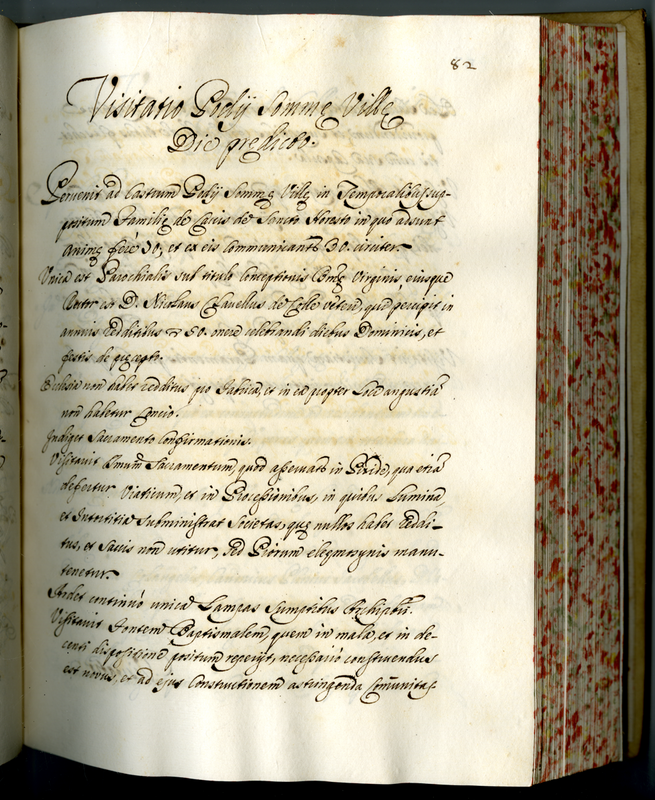 82
Visitatio Podij Sommę Villę
Die prędicto.
Pervenit ad Castrum Podij Sommę Villę in Temporalibus sup-
positum Familię de Cavis de Sancto Floresto in quo adsunt
Animę ferè 50; et ex eis Communicantes 30. circiter.
Unica est Parochialis sub titulo Conceptionis Virginis, eiusque
Rector est D. Nicolaus de Colle veteri, qui percipit in
annuis redditibus 50. onere celebrandi diebus Dominicis, et
festis de pręcepto.
Ecclesia non habet redditus pro Fabrica, et in ea propter Loci angustiã
non habetur Concio.
Indiget Sacramento Confirmationis.
Visitavit Smum Sacramentum, quod asservatur in Pixide, qua etiã
defertur Viaticum, et in Processionibus, in quibus Lumina,
et Intortitia subministrat Societas, quę nullos habet Reddi-
tus, et Saccis non utitur, sed Piorum elegmozynis manu-
tenetur.
Ardet continuò unica Lampas sumptibus
Visitavit Fontem Baptismalem, quem in mala, et in de-
centi dispositione positum reperijt, necessariò construendus
est novus, et ad ejus Constructionem astringenda Comunitas.